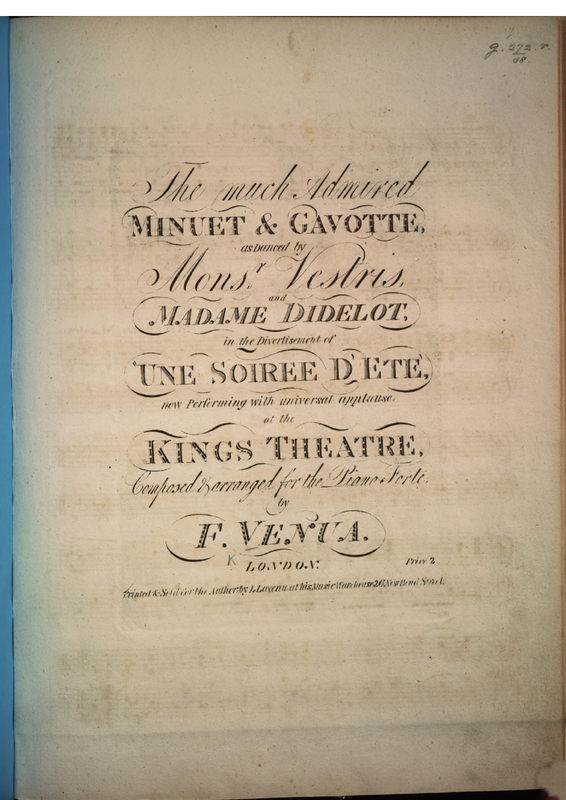 g. 272. r.
The much Admired
MINUET & GAVOTTE,
as Danced by
Mons.r Vestris,
and
MADAME DIDELOT,
in the Divertisement of
UNE SOIREE D'ETE,
now Performing with universal applause,
at the
KINGS THEATRE,
Composed & arranged for the Piano Forte,
by
F. VENUA.
K
LONDON:
Price 2
Printed & Sold for the Author by L. Lavenu at his Music Warehouse 26 New Bond Street.